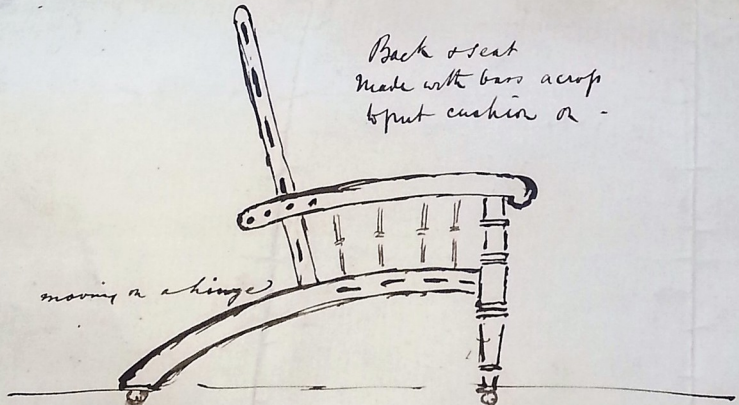 Back & seat
Made with bars across
to put cushion on -
moving on a hinge